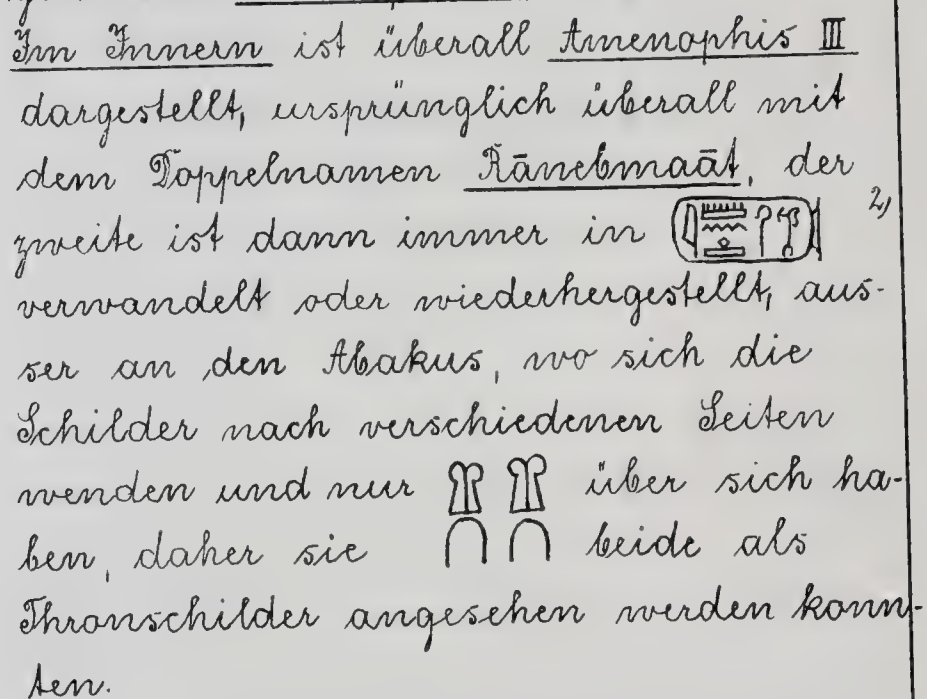 Im Innern ist überall Amenophis III
dargestellt, ursprünglich überall mit
dem Doppelnamen Rānebmaāt, der
zweite ist dann immer in 2)
verwandelt oder wiederhergestellt, aus-
ser an den Abakus, wo sich die
Schilder nach verschiedenen Seiten
wenden und nur über sich ha-
ben, daher sie beide als
Thronschilder angesehen werden konn-
ten.